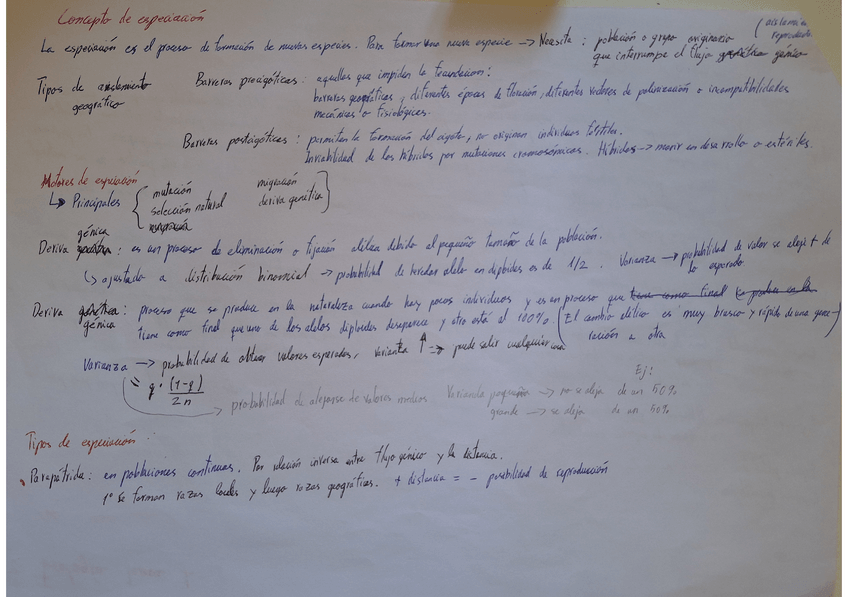 Concepto de especiación
La especiación es el proceso de formación de nuevas especies. Para formar una nueva especie → Necesita: población o grupo originario (aislamien reproducti
que interrumpe el flujo genético génico
Tipos de aislamiento geográfico
Barreras precigóticas: aquellas que impiden la fecundación:
barreras geográficas, diferentes épocas de floración, diferentes vectores de polinización o incompatibilidades
mecánicas o fisiológicas.
Barreras postcigóticas: permiten la formación del cigoto, no originan individuos fértiles.
Inviabilidad de los híbridos por mutaciones cromosómicas. Híbridos → morir en desarrollo o estériles.
Motores de especiación
↳ Principales { mutación migración
selección natural deriva genética }
migración
génica
Deriva genética: es un proceso de eliminación o fijación alélica debido al pequeño tamaño de la población.
↳ ajustado a distribución binomial → probabilidad de heredar alelo en diploides es de 1/2. Varianza → probabilidad de valor se aleje + de
lo esperado
Deriva genética: proceso que se produce en la naturaleza cuando hay pocos individuos y es un proceso que tiene como final
génica tiene como final que uno de los alelos diploides desaparece y otro está al 100% (El cambio alélico es muy brusco y rápido de una gene-
ración a otra)
Varianza → probabilidad de obtener valores esperados, varianza ↑ → puede salir cualquier cosa
= q · (1-q) / 2n
→ probabilidad de alejarse de valores medios. Varianza pequeña → no se aleja de un 50%
Ej:
grande → se aleja de un 50%
Tipos de especiación:
• Parapátrida: en poblaciones continuas. Por relación inversa entre flujo génico y la distancia.
1º Se forman razas locales y luego razas geográficas. + distancia = - posibilidad de reproducción